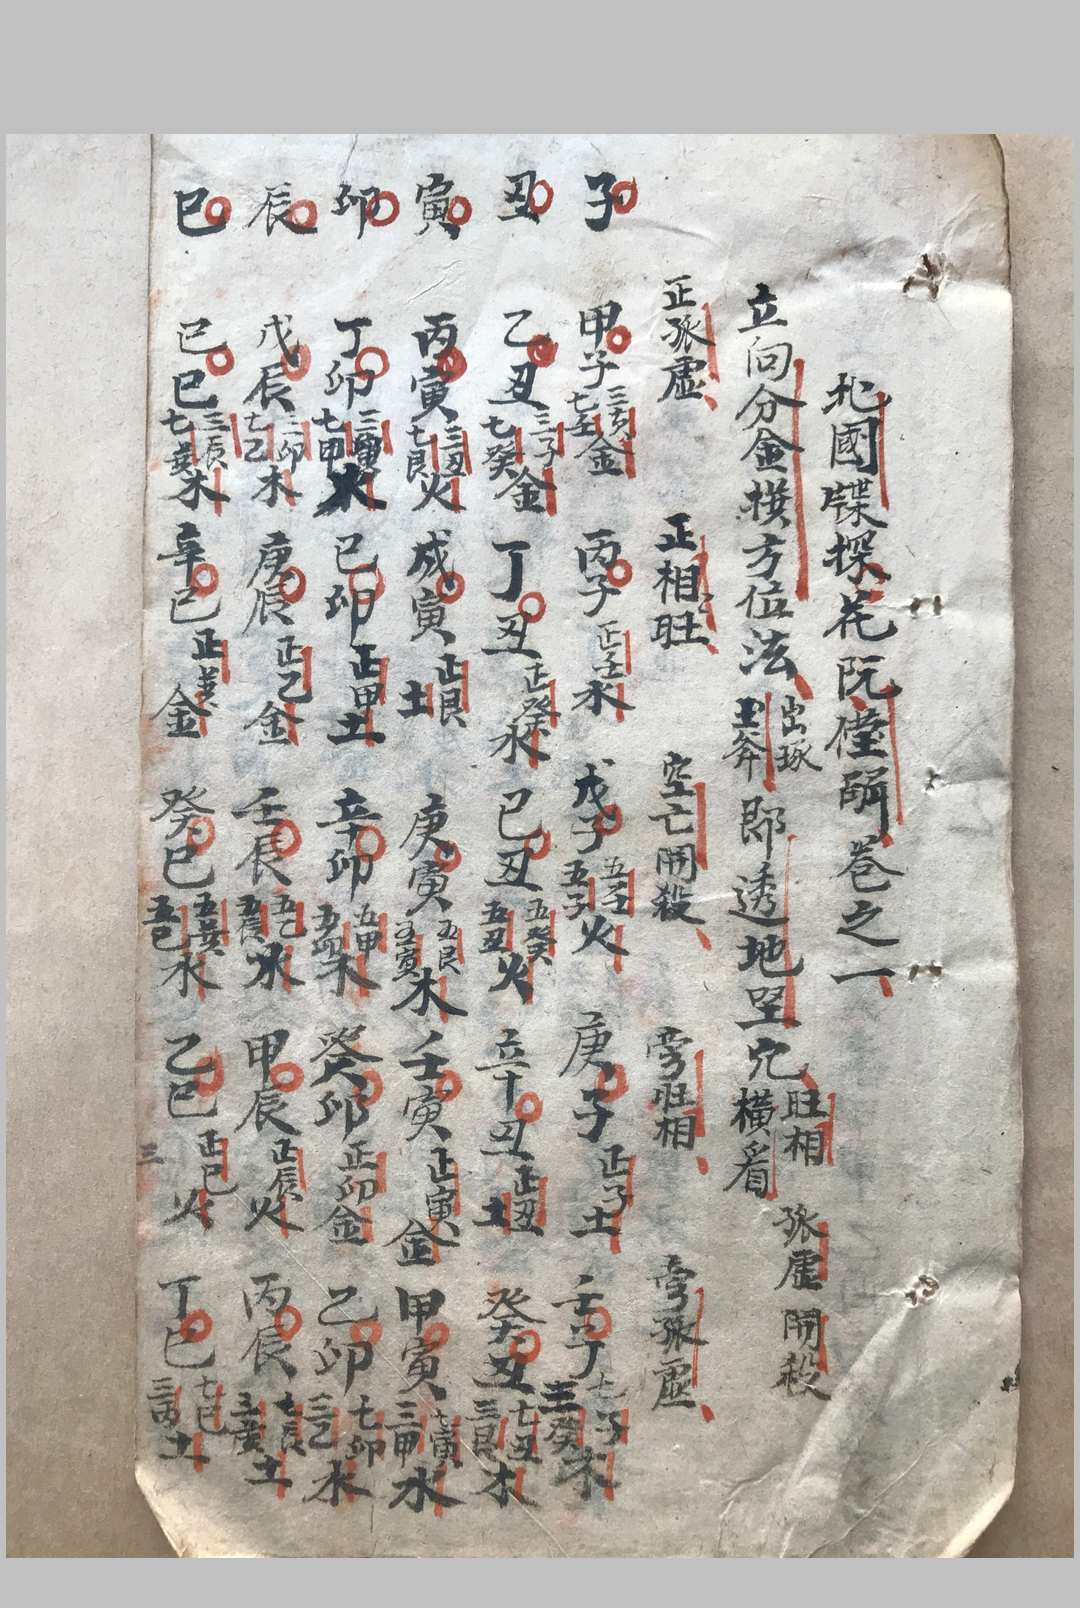 北國牒探花阮儝䎙卷之一
立向分金撗方位法 出琢 土奔 即透地坚穴 旺相 孤虛 鬧殺 橫看
正孤虛 正相旺 空亡鬧殺 旁旺相 旁孤虛
子 甲子 三亥 七壬 金 丙子 正壬 水 戊子 五壬 五子 火 庚子 正子 土 壬子 七子 三癸 木
丑 乙丑 三子 七癸 金 丁丑 正癸 水 己丑 五癸 五丑 火 辛丑 正丑 土 癸丑 七丑 三艮 木
寅 丙寅 三丑 七艮 火 戊寅 正艮 土 庚寅 五艮 五寅 木 壬寅 正寅 金 甲寅 七寅 三甲 水
卯 丁卯 三寅 七甲 火 己卯 正甲 土 辛卯 五甲 五卯 木 癸卯 正卯 金 乙卯 七卯 三乙 水
辰 戊辰 三卯 七乙 木 庚辰 正乙 金 壬辰 五乙 五辰 水 甲辰 正辰 火 丙辰 七辰 三巽 土
巳 己巳 三辰 七巽 木 辛巳 正巽 金 癸巳 五巽 五巳 水 乙巳 正巳 火 丁巳 七巳 三丙 土
三